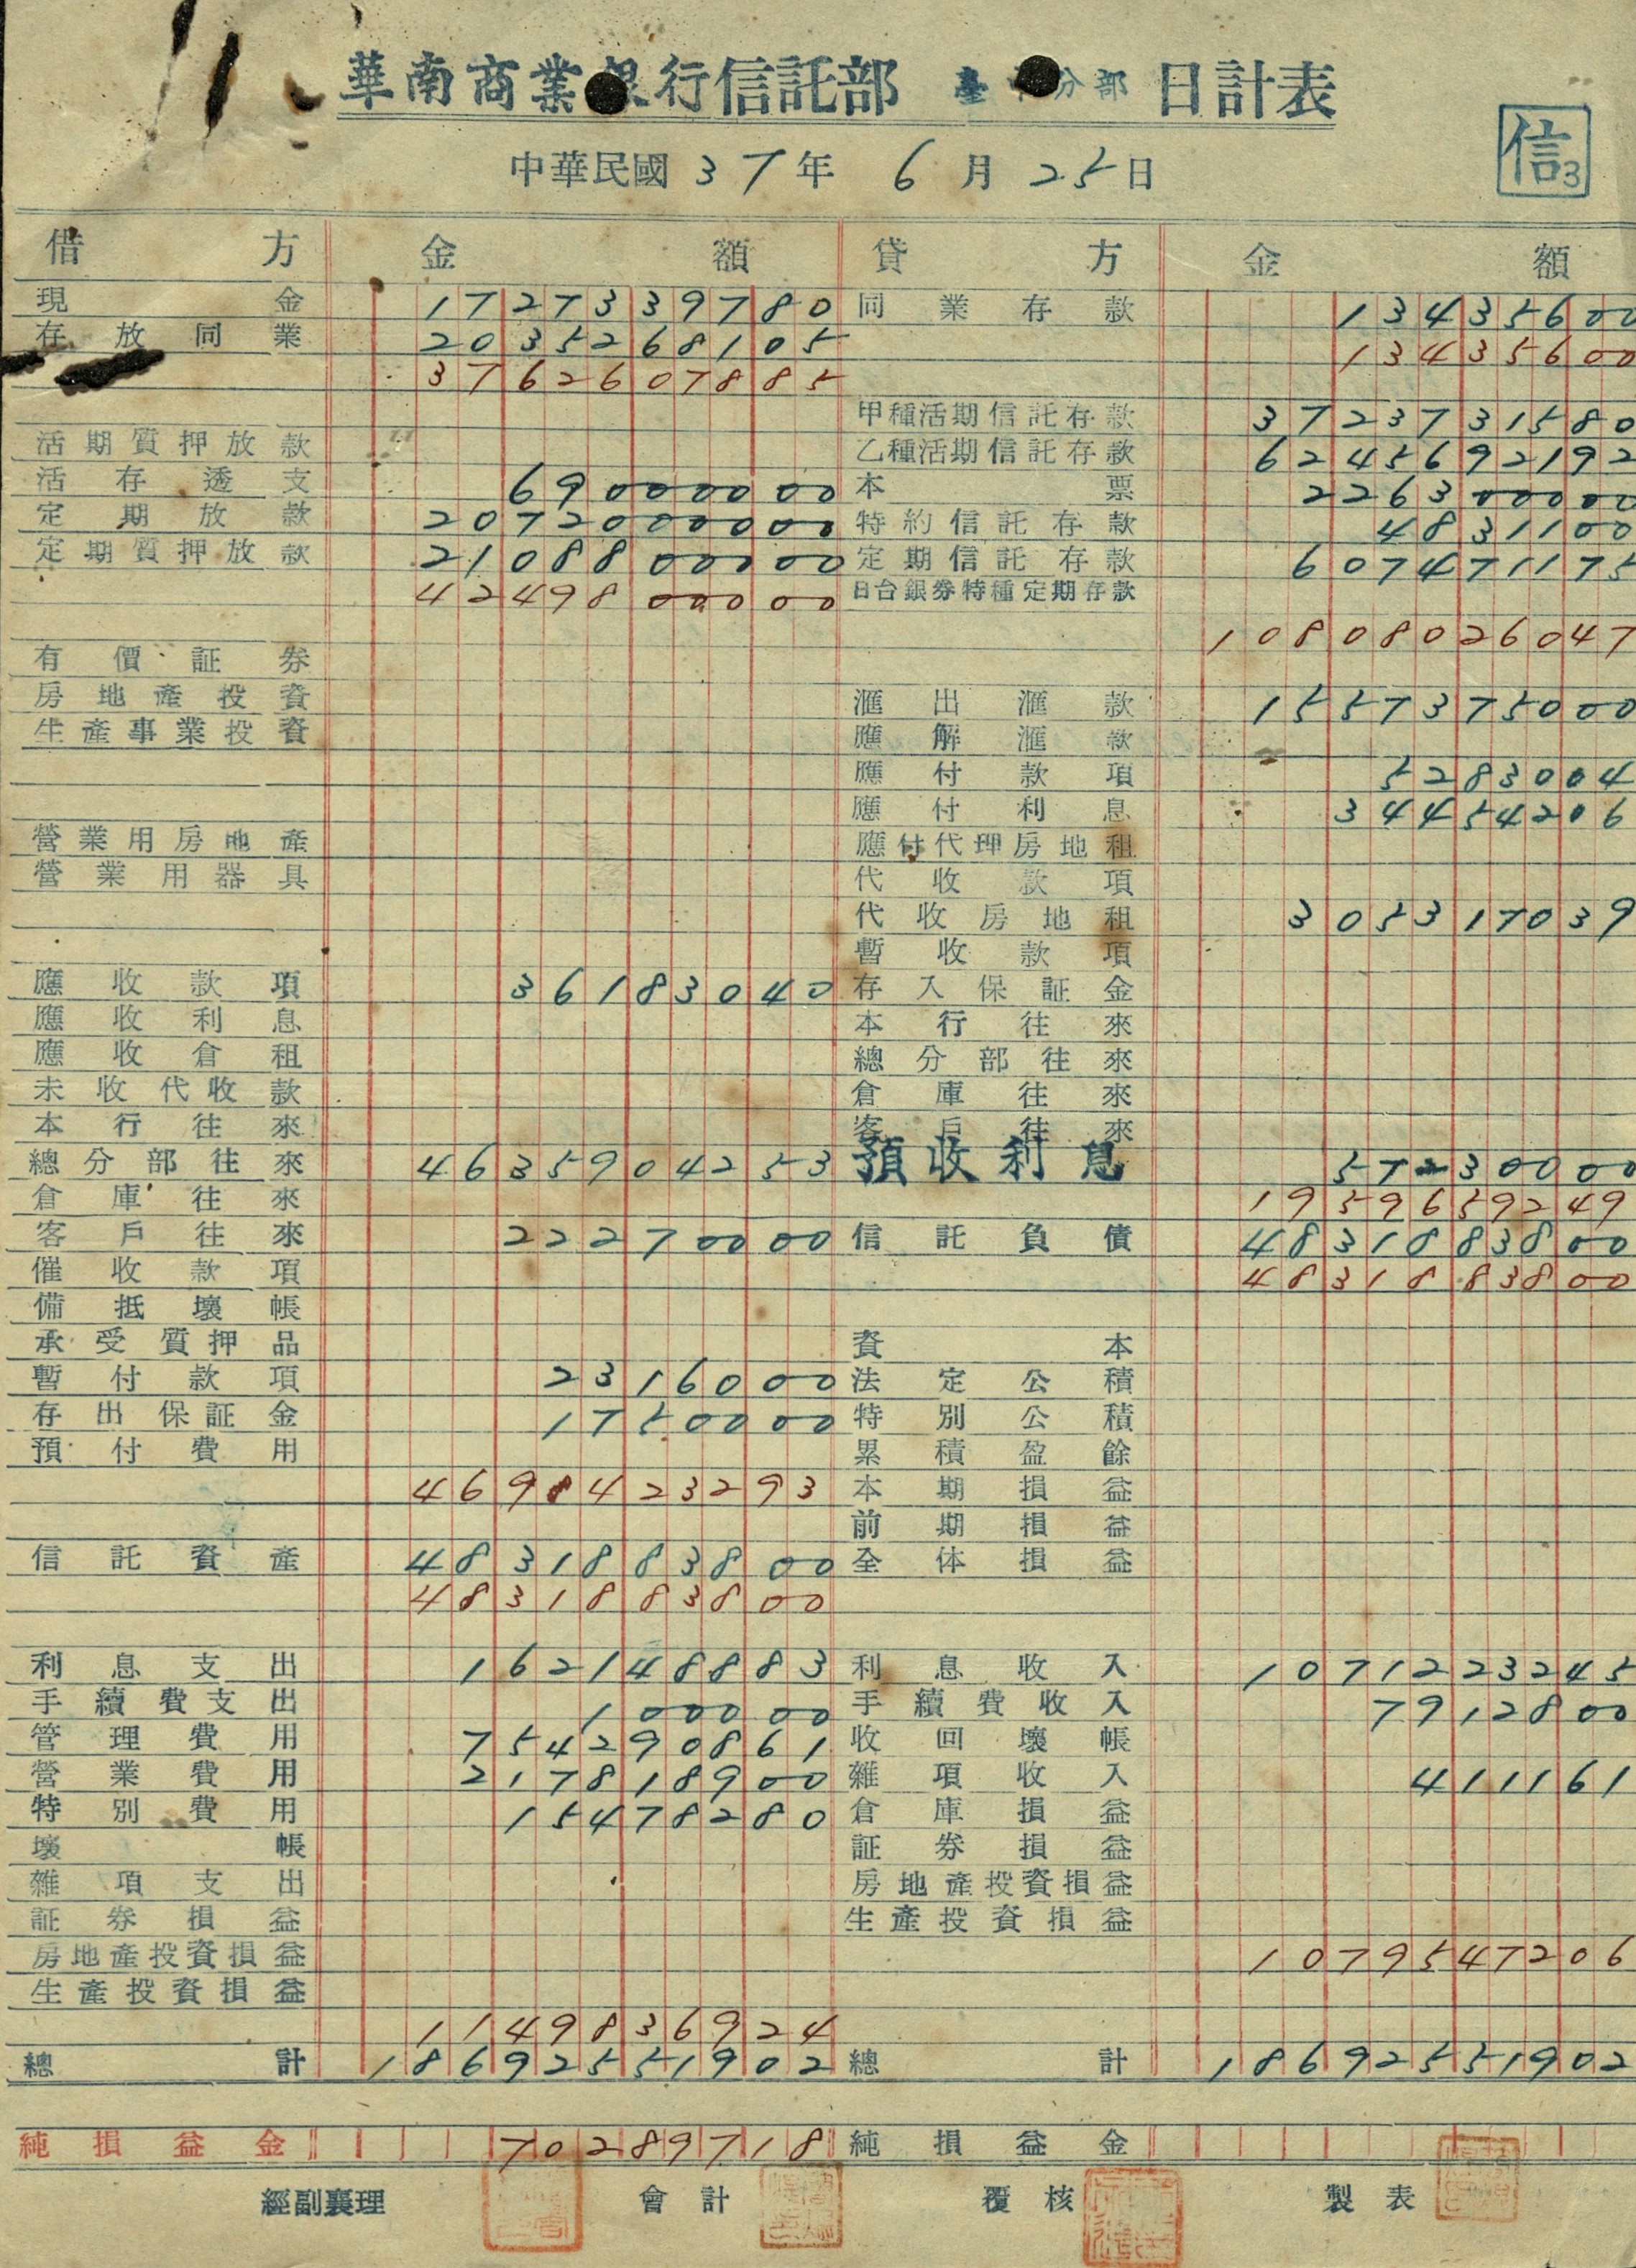 華南商業銀行信託部 臺 分部 日計表
中華民國 37 年 6 月 25 日
信3
借方 金額 貸方 金額
現金 1727339780 同業存款 13435600
存放同業 2035268105 13435600
3762607885
甲種活期信託存款 3723731580
活期質押放款 乙種活期信託存款 6245692192
活存透支 69000000 本票 226300000
定期放款 2072000000 特約信託存款 4831100
定期質押放款 2108800000 定期信託存款 607471175
4249800000 日台銀券特種定期存款
10808026047
有價証券
房地產投資 滙出滙款 1557375000
生產事業投資 應解滙款
應付款項 5283004
應付利息 34454206
營業用房地產 應付代理房地租
營業用器具 代收款項
代收房地租 305317039
暫收款項
應收款項 36183040 存入保証金
應收利息 本行往來
應收倉租 總分部往來
未收代收款 倉庫往來
本行往來 客戶往來
總分部往來 4635904253 預收利息 57230000
倉庫往來 1959659249
客戶往來 22270000 信託負債 4831883800
催收款項 4831883800
備抵壞帳
承受質押品 資本
暫付款項 2316000 法定公積
存出保証金 1750000 特別公積
預付費用 累積盈餘
4698423293 本期損益
前期損益
信託資產 4831883800 全体損益
4831883800
利息支出 162148883 利息收入 1071223245
手續費支出 100000 手續費收入 7912800
管理費用 754290861 收回壞帳
營業費用 217818900 雜項收入 411161
特別費用 15478280 倉庫損益
壞帳 証券損益
雜項支出 房地產投資損益
証券損益 生產投資損益
房地產投資損益 1079547206
生產投資損益
1149836924
總計 18692551902 總計 18692551902
純損益金 70289718 純損益金
經副襄理 會計 覆核 製表